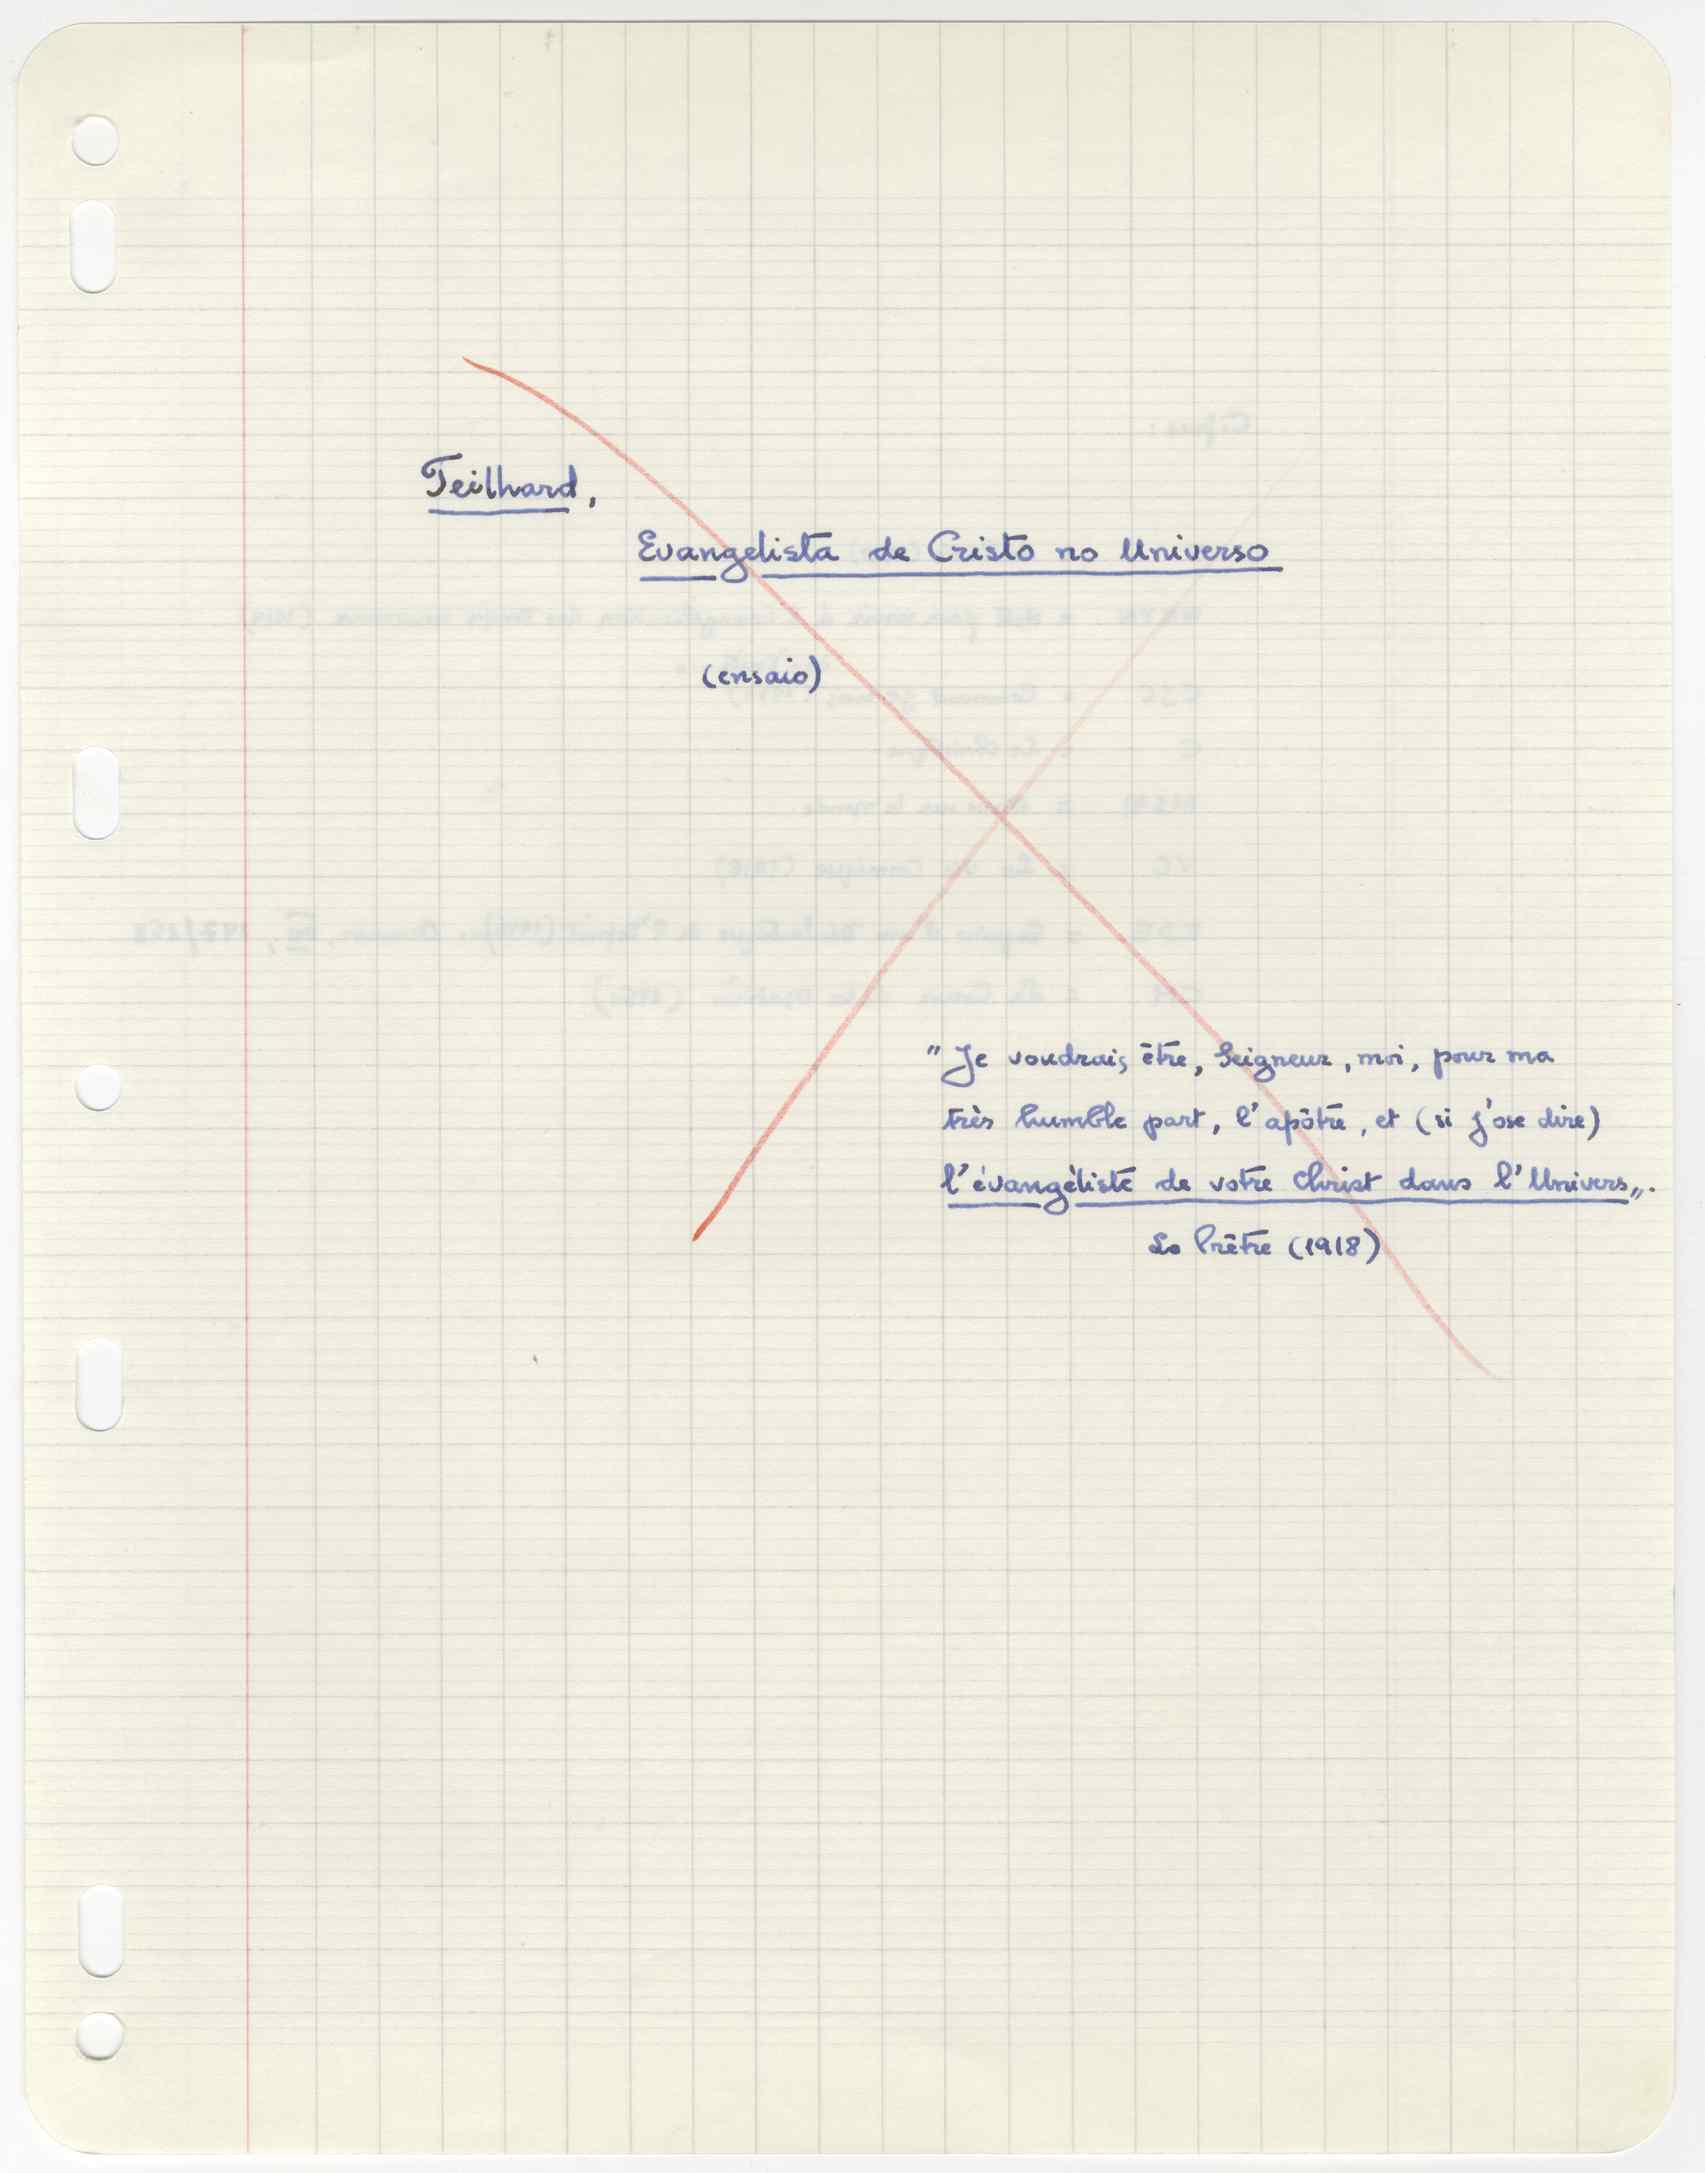 Teilhard,
Evangelista de Cristo no Universo
(ensaio)
"Je voudrais être, Seigneur, moi, pour ma
très humble part, l'apôtre, et (si j'ose dire)
l'évangéliste de votre Christ dans l'Univers".
Le Prêtre (1918)